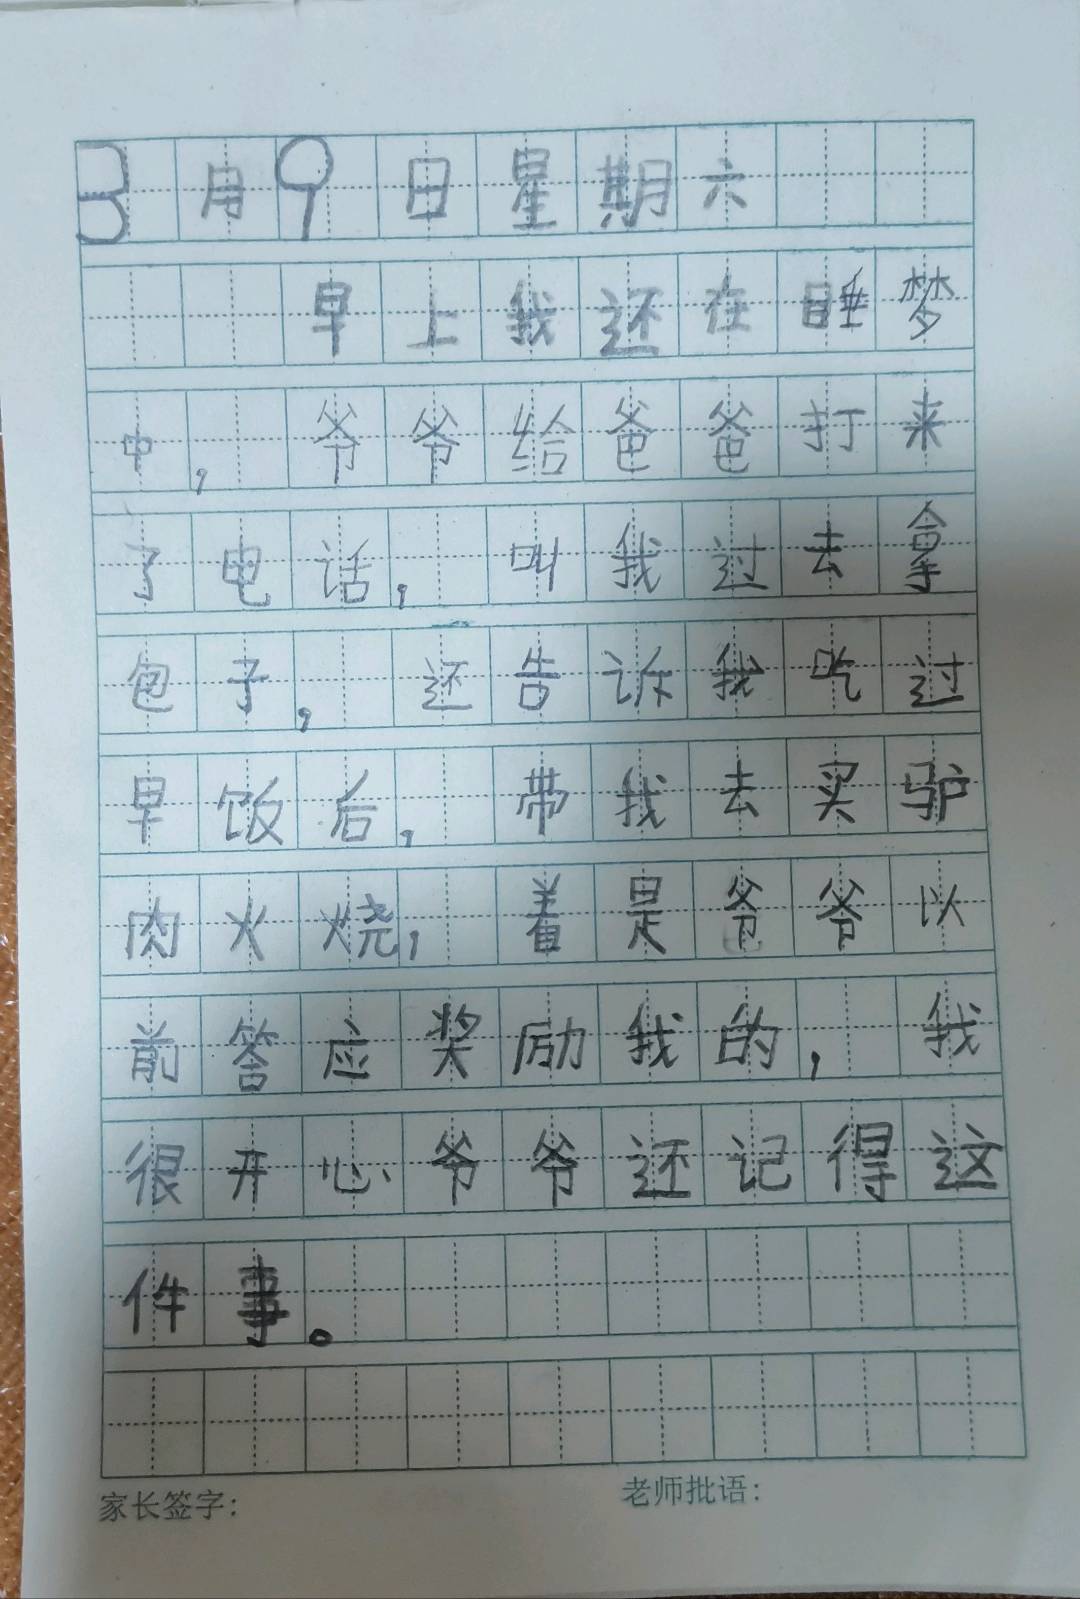 3月9日星期六
早上我还在睡梦
中，爷爷给爸爸打来
了电话，叫我过去拿
包子，还告诉我吃过
早饭后，带我去买驴
肉火烧，着是爷爷以
前答应奖励我的，我
很开心爷爷还记得这
件事。
家长签字：
老师批语：